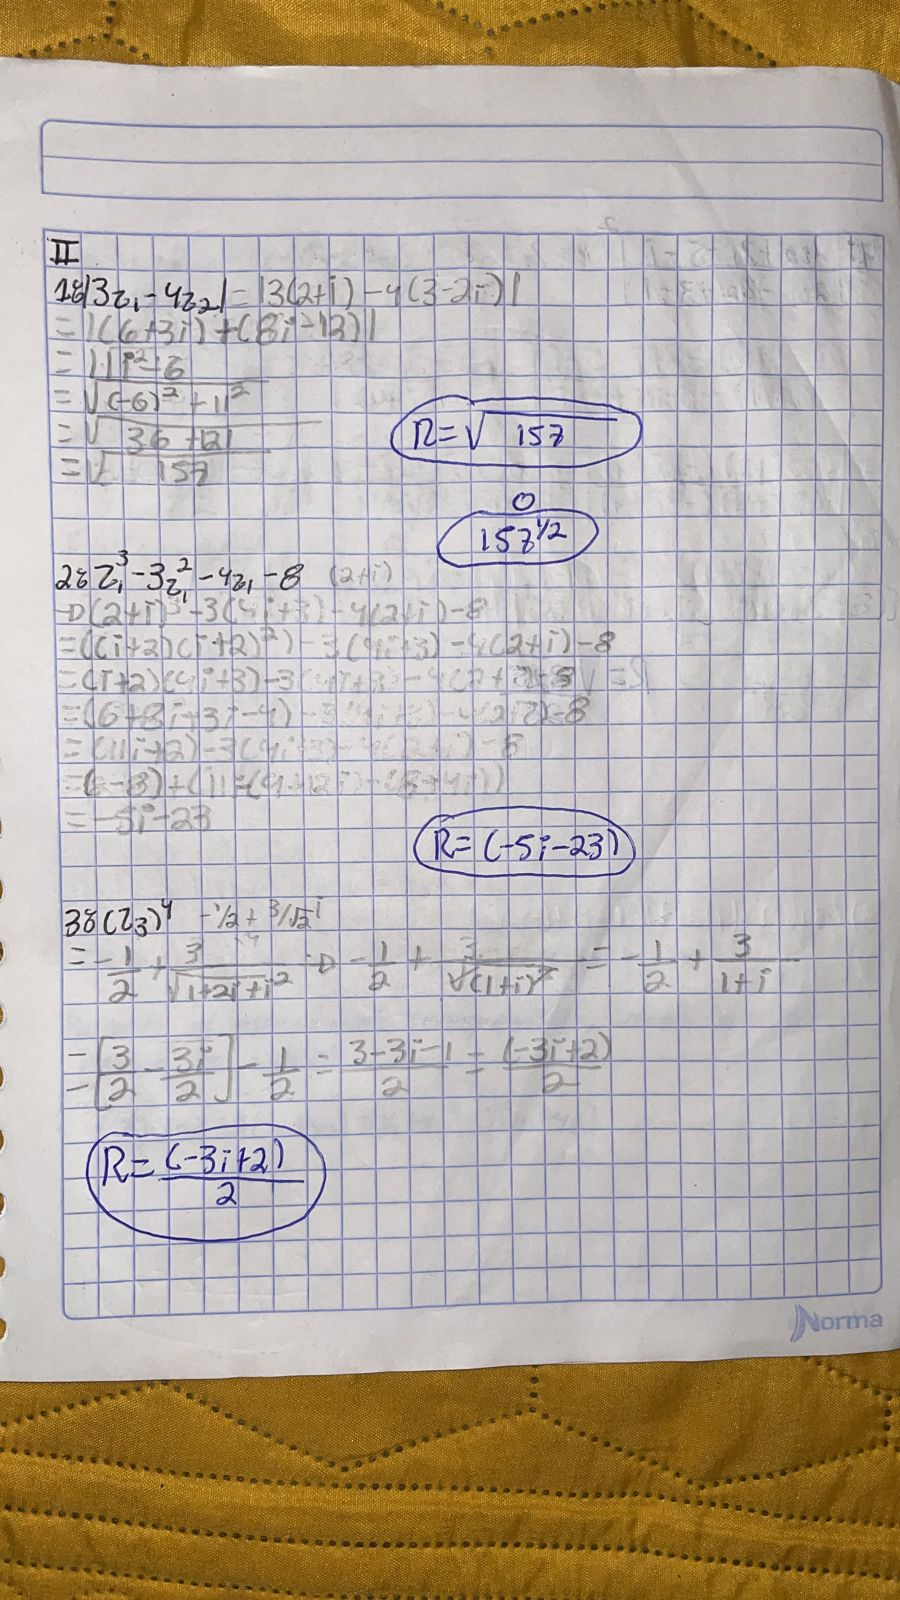 II
1. |3z₁ - 4z₂| = |3(2+i) - 4(3-2i)|
= |(6+3i) + (8i-12)|
= |11i - 6|
= √(-6)² + 11²
= √36 + 121
= √157
R = √157
o
157^1/2
2. z₁³ - 3z₁² - 4z₁ - 8 (2+i)
→ (2+i)³ - 3(4i+3) - 4(2+i) - 8
= ((i+2)(i+2)²) - 3(4i+3) - 4(2+i) - 8
= (i+2)(4i+3) - 3(4i+3) - 4(2+
= (6+8i+3i-4) - 3(4i+3) - 4( - 8
= (11i+2) - 3(4i+3) - 4(2+i) - 8
-8) + (11 -(9+12i) - (8+4i))
= -5i - 23
R = (-5i - 23)
3. (z₃)⁴ -1/2 + 3/√2 i
= -1/2 + 3/√1+2i+i² → -1/2 + 3/√(1+i)² = -1/2 + 3/1+i
= [3/2 - 3i/2] - 1/2 = 3-3i-1/2 = (-3i+2)/2
R = (-3i+2)/2
Norma